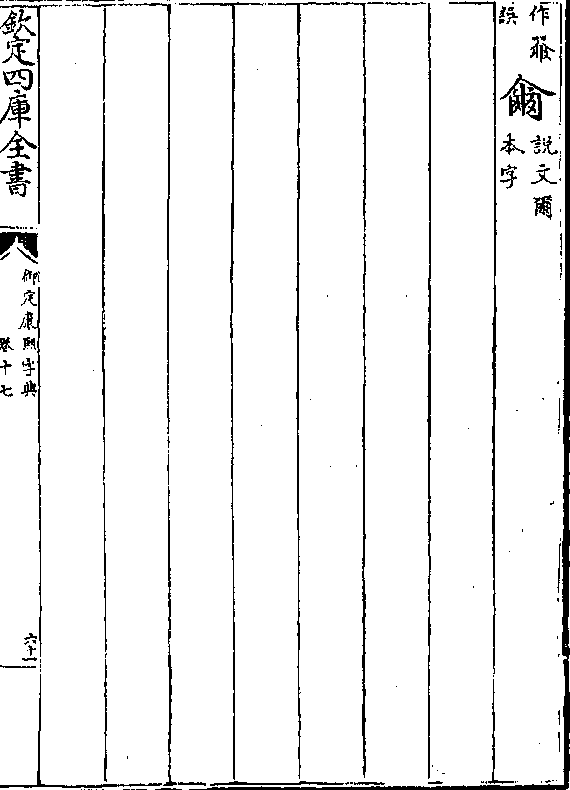 作
誤
說文爾
本字
欽定四庫全書
御定康熙字典
卷十七
六十一